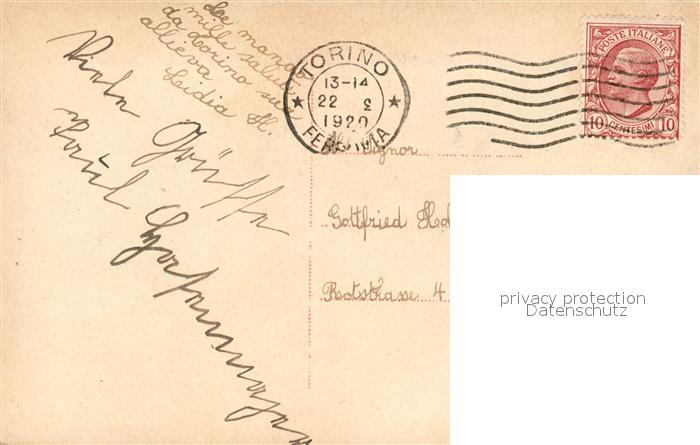 Le manda
mille saluti
da Torino sua
allieva
Lidia H.
Viele Grüsse
Paul
TORINO
13-14
22 2
1920
FERROVIA
POSTE ITALIANE
10 CENTESIMI 10
Signor
Gottfried
Rotstrasse 4
privacy protection
Datenschutz